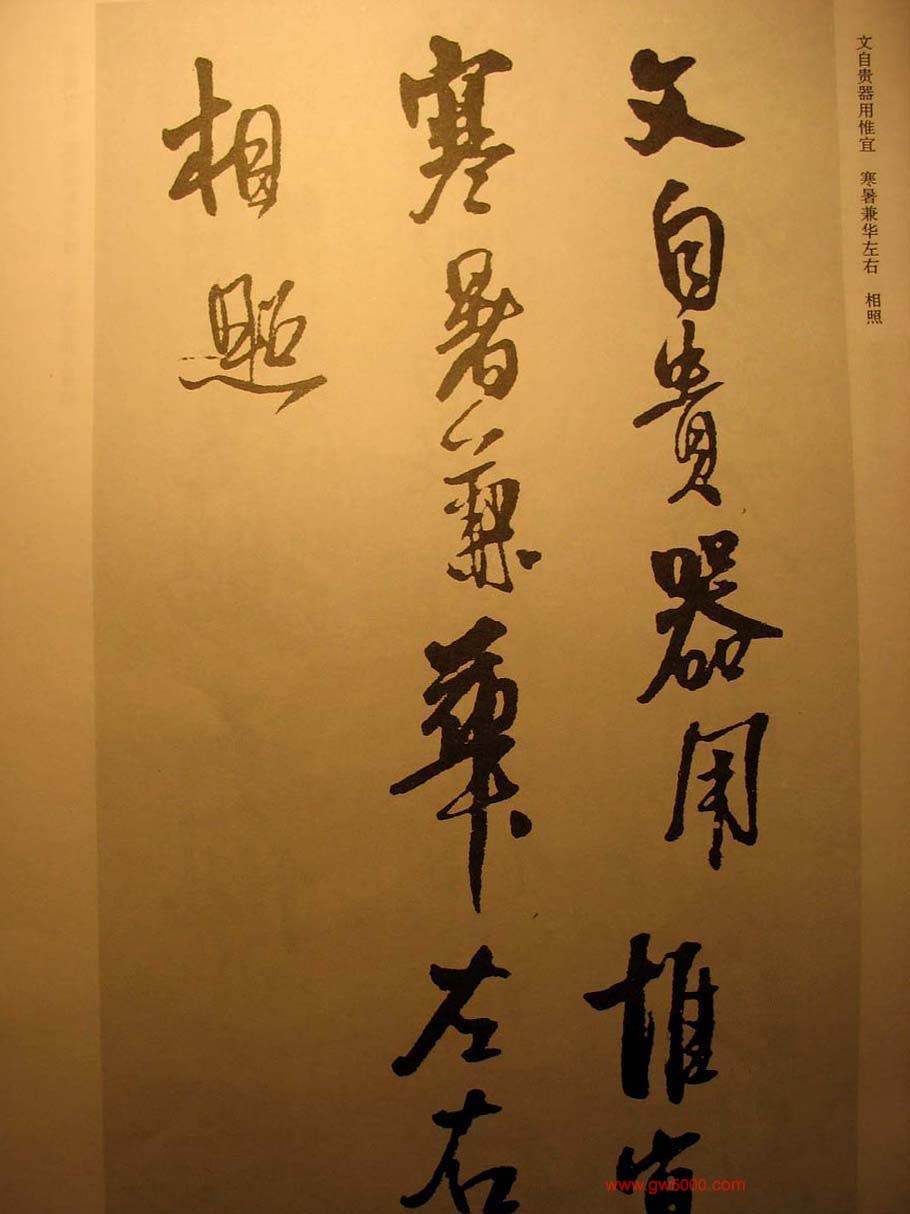 文自贵器用惟宜 寒暑兼华左右 相照
文自貴器用惟宜
寒暑兼華左右
相照
www.gw5000.com